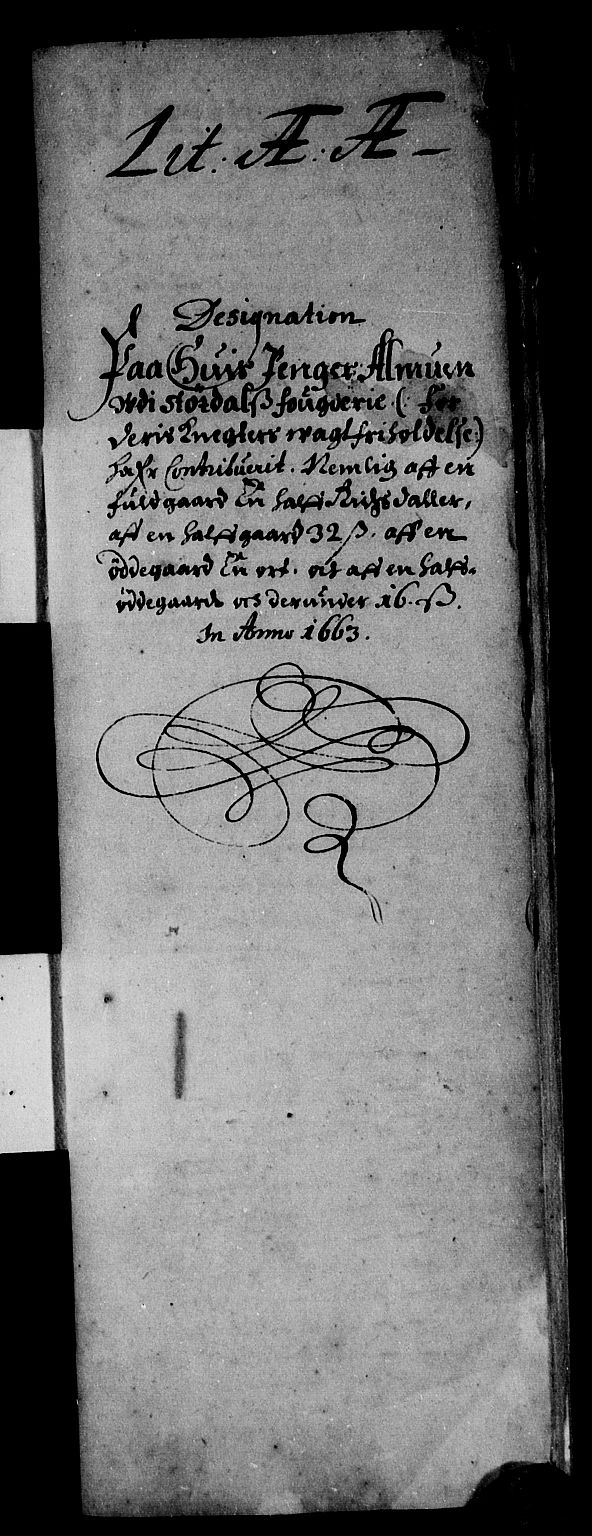 Lit. Æ. Æ
Designation
Paa Huis Penger Almuen
udi Størdalß fougderie (: for
deris Knegters wagt friholdelse :)
hafr Contribuerit. Nemlig aff en
fuldgaard En halff Richsdaller,
aff en halffgaard 32 ß. aff en
øddegaard En ort. och aff en halff-
øddegaard och derunder 16 ß.
In Anno 1663.